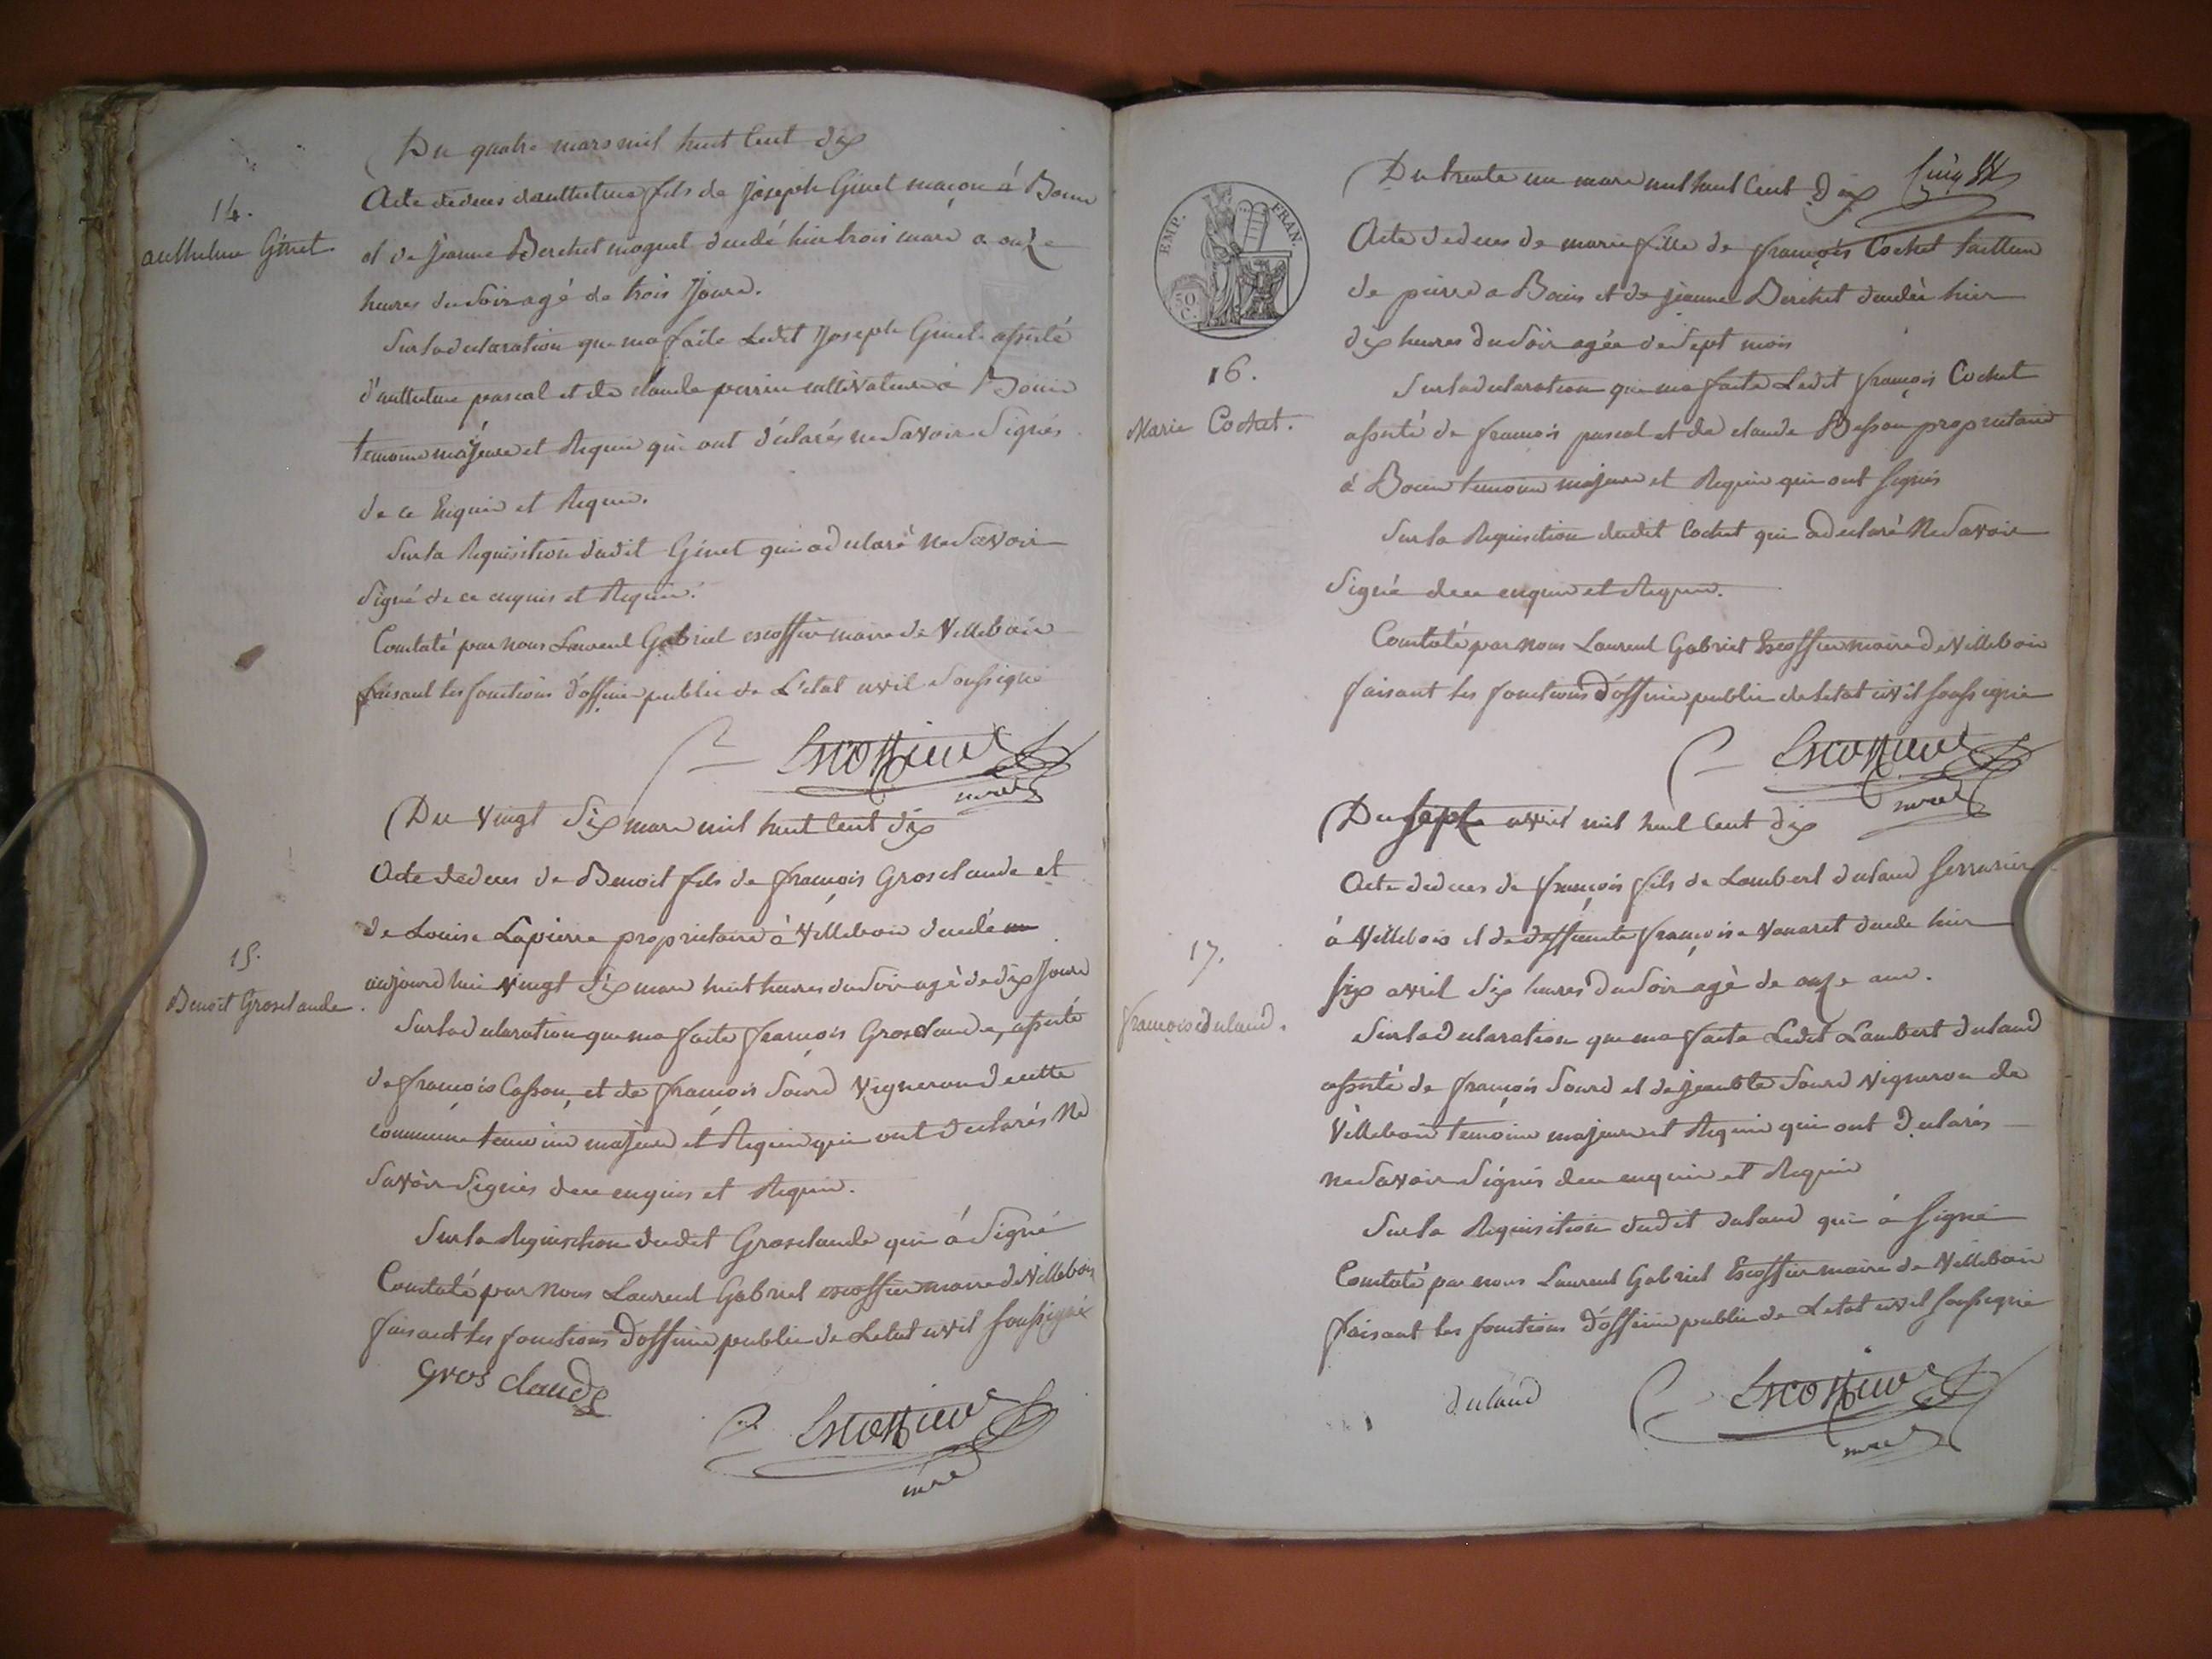 Du quatre mars mil huit Cent dix
14.
anthelme Ginet
Acte de deces danthelme fils de Joseph Ginet maçon á Bouis
et de Jeanne Berchet moguet décédé hier trois mars a onze
heures du Soir agé de trois Jours.
Sur la declaration que ma faite Ledit Joseph Ginet assisté
d'anthelme pascal et de claude perrin cultivateurs á Bouis
temoins majeurs et Requis qui ont déclarés ne Savoir Signés
de ce Enquis et Requis.
Sur la Requisition dudit Ginet qui a declaré ne Savoir
Signé de ce enquis et Requis.
Constaté par nous Laurent Gabriel escoffier maire de Villebois
faisant les fonctions d'officier public de L'etat civil Soussigné
Escoffier
maire
Du Vingt Six mars mil huit Cent dix
15.
Benoit Grosclaude.
Acte de deces de Benoit fils de françois Grosclaude et
de Louise Lapierre proprietaire à Villebois decedé
aujourd'hui Vingt Six mars huit heures du Soir agé de dix Jours
Sur la declaration que ma faite françois Grosclaude, assisté
de françois Casson, et de françois Sourd Vignerons de cette
commune temoins majeurs et Requis qui ont declarés Ne
Savoir Signés de ce enquis et Requis.
Sur la Requisition dudit Grosclaude qui á Signé
Constaté par Nous Laurent Gabriel escoffier maire de Villebois
faisant les fonctions d'officier public de Letat civil Soussigné
Gros claude
Escoffier
maire
Du trente un mars mil huit Cent Dix
EMP. FRAN.
50 C.
16.
Marie Cochet.
Acte de deces de marie fille de françois Cochet tailleur
de pierre a Bouis et de jeanne Berchet decedée hier
dix heures du Soir agée de Sept mois
Sur la declaration que ma faite Ledit françois Cochet
assisté de françois pascal et de claude Besson proprietaires
á Bouis temoins majeurs et Requis qui ont Signés
Sur la Requisition dudit Cochet qui a declaré Ne Savoir
Signé de ce enquis et Requis.
Constaté par Nous Laurent Gabriel Escoffier maire de Villebois
faisant les fonctions d'officier public de letat civil soussigné
Escoffier
maire
Du Sept avril mil huit Cent dix
17.
françois duland.
Acte de deces de françois fils de Lambert duland Serrurier
á Villebois et de deffunte françoise Vanaret decede hier
Six avril Six heures du Soir agé de onze ans.
Sur la declaration que ma faite Ledit Lambert duland
assisté de françois Sourd et de jean bte Sourd Vigneron de
Villebois temoins majeurs et Requis qui ont Declarés
ne Savoir Signés de ce enquis et Requis
Sur la Requisition dudit duland qui á Signé
Constaté par nous Laurent Gabriel Escoffier maire de Villebois
faisant les fonctions d'officier public de Letat civil Soussigné
duland
Escoffier
maire